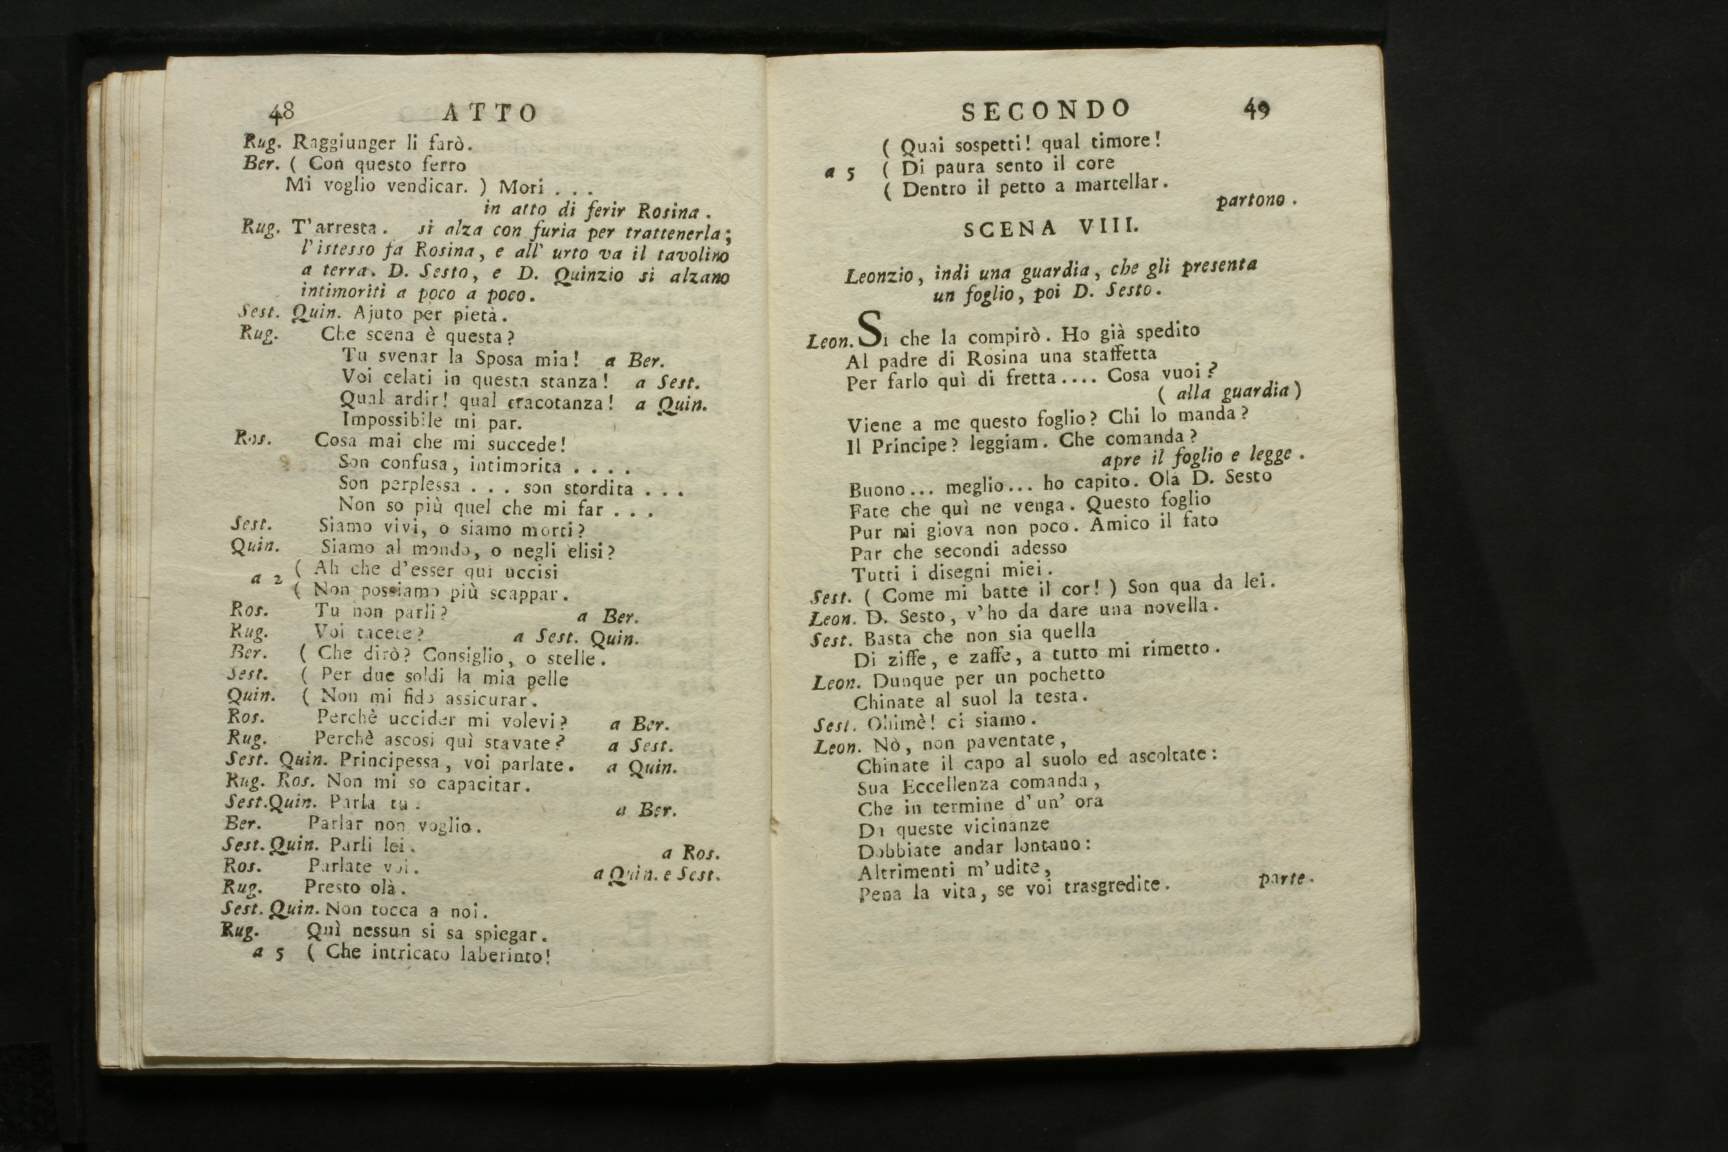 48 ATTO
Rug. Raggiunger li farò.
Ber. ( Con questo ferro
Mi voglio vendicar. ) Mori . . .
in atto di ferir Rosina .
Rug. T'arresta . si alza con furia per trattenerla ;
l'istesso fa Rosina , e all' urto va il tavolino
a terra . D. Sesto , e D. Quinzio si alzano
intimoriti a poco a poco .
Sest. Quin. Ajuto per pietà .
Rug. Che scena è questa ?
Tu svenar la Sposa mia ! a Ber.
Voi celati in questa stanza ! a Sest.
Qual ardir ! qual tracotanza ! a Quin.
Impossibile mi par.
Ros. Cosa mai che mi succede !
Son confusa , intimorita . . . .
Son perplessa . . . son stordita . . .
Non so più quel che mi far . . .
Sest. Siamo vivi , o siamo morti ?
Quin. Siamo al mondo , o negli elisi ?
( Ah che d'esser quì uccisi
a 2
( Non possiamo più scappar .
Ros. Tu non parli ? a Ber.
Rug. Voi tacete ? a Sest. Quin.
Ber. ( Che dirò ? Consiglio , o stelle .
Sest. ( Per due soldi la mia pelle
Quin. ( Non mi fido assicurar .
Ros. Perchè uccider mi volevi ? a Ber.
Rug. Perchè ascosi quì stavate ? a Sest.
Sest. Quin. Principessa , voi parlate . a Quin.
Rug. Ros. Non mi so capacitar .
Sest. Quin. Parla tu . a Ber.
Ber. Parlar non voglio .
Sest. Quin. Parli lei . a Ros.
Ros. Parlate voi . a Quin. e Sest.
Rug. Presto olà .
Sest. Quin. Non tocca a noi .
Rug. Quì nessun si sa spiegar .
a 5 ( Che intricato laberinto !
SECONDO 49
( Quai sospetti ! qual timore !
a 5 ( Di paura sento il core
( Dentro il petto a martellar .
partono .
SCENA VIII.
Leonzio , indi una guardia , che gli presenta
un foglio , poi D. Sesto .
Leon. Si che la compirò . Ho già spedito
Al padre di Rosina una staffetta
Per farlo quì di fretta .... Cosa vuoi ?
( alla guardia )
Viene a me questo foglio ? Chi lo manda ?
Il Principe ? leggiam . Che comanda ?
apre il foglio e legge .
Buono ... meglio ... ho capito . Olà D. Sesto
Fate che quì ne venga . Questo foglio
Pur mi giova non poco . Amico il fato
Par che secondi adesso
Tutti i disegni miei .
Sest. ( Come mi batte il cor ! ) Son qua da lei .
Leon. D. Sesto , v'ho da dare una novella .
Sest. Basta che non sia quella
Di ziffe , e zaffe , a tutto mi rimetto .
Leon. Dunque per un pochetto
Chinate al suol la testa .
Sest. Ohimè ! ci siamo .
Leon. Nò , non paventate ,
Chinate il capo al suolo ed ascoltate :
Sua Eccellenza comanda ,
Che in termine d' un' ora
Da queste vicinanze
Dobbiate andar lontano :
Altrimenti m'udite ,
Pena la vita , se voi trasgredite . parte .